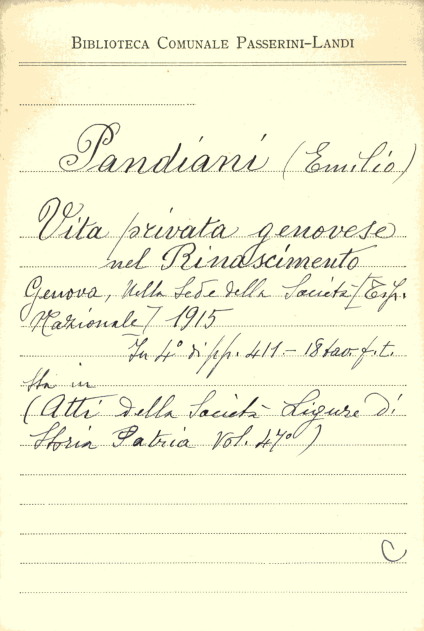 BIBLIOTECA COMUNALE PASSERINI-LANDI
Pandiani (Emilio)
Vita privata genovese
nel Rinascimento
Genova, Nella Sede della Società [Tip.
Nazionale] 1915
In 4° di pp. 411 - 18 tav. f. t.
Sta in
(Atti della Società Ligure di
Storia Patria Vol. 47°)
C